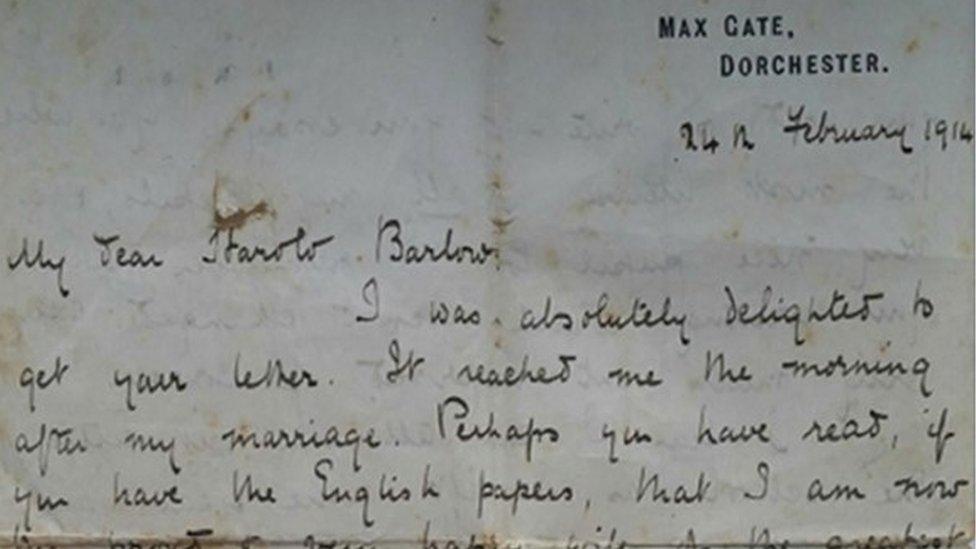 MAX GATE,
DORCHESTER.
24th February 1914
My dear Harold Barlow,
I was absolutely delighted to
get your letter. It reached me the morning
after my marriage. Perhaps you have read, if
you have the English papers, that I am now
the proud & very happy wife of the greatest